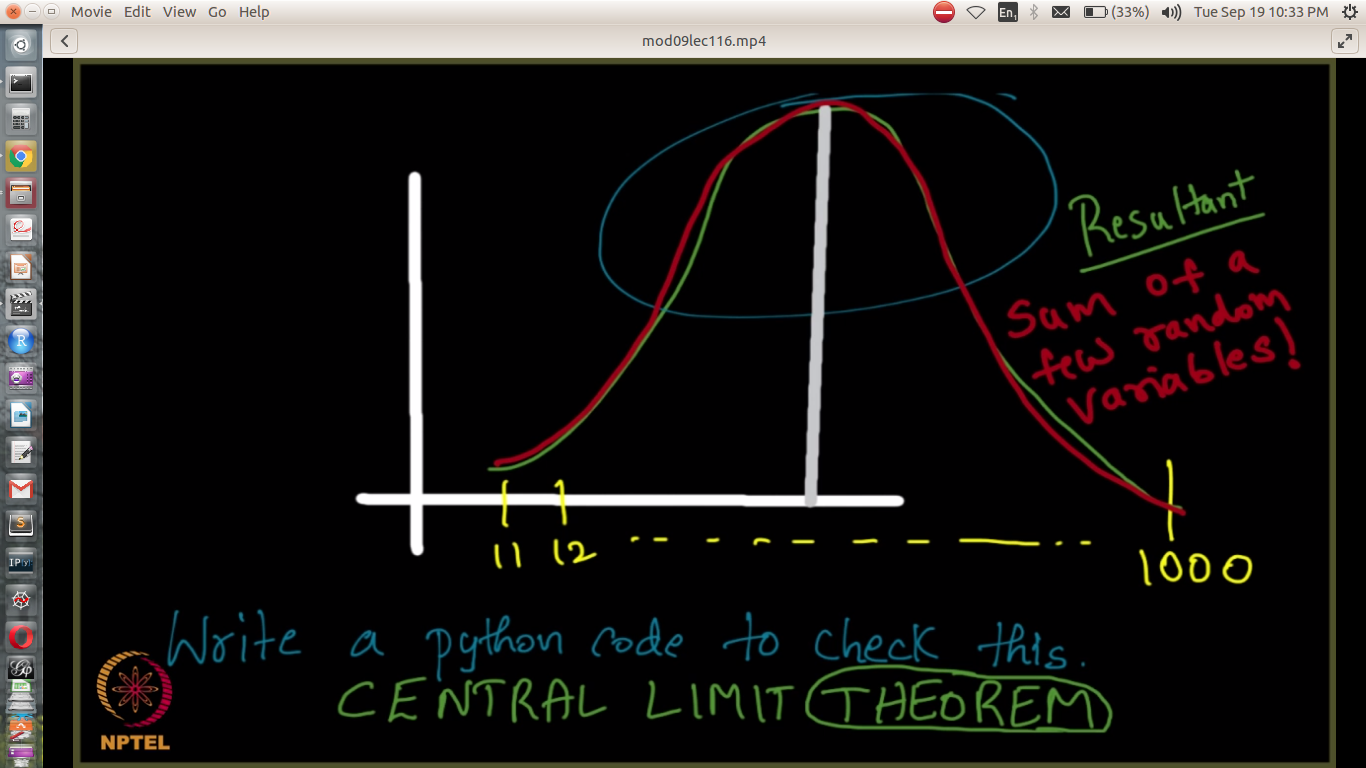 Movie Edit View Go Help
En1 (33%) Tue Sep 19 10:33 PM
mod09lec116.mp4
Resultant
Sum of a
few random
variables!
11 12 1000
Write a python code to check this.
CENTRAL LIMIT THEOREM
NPTEL
R
S
IP[y]:
Gp